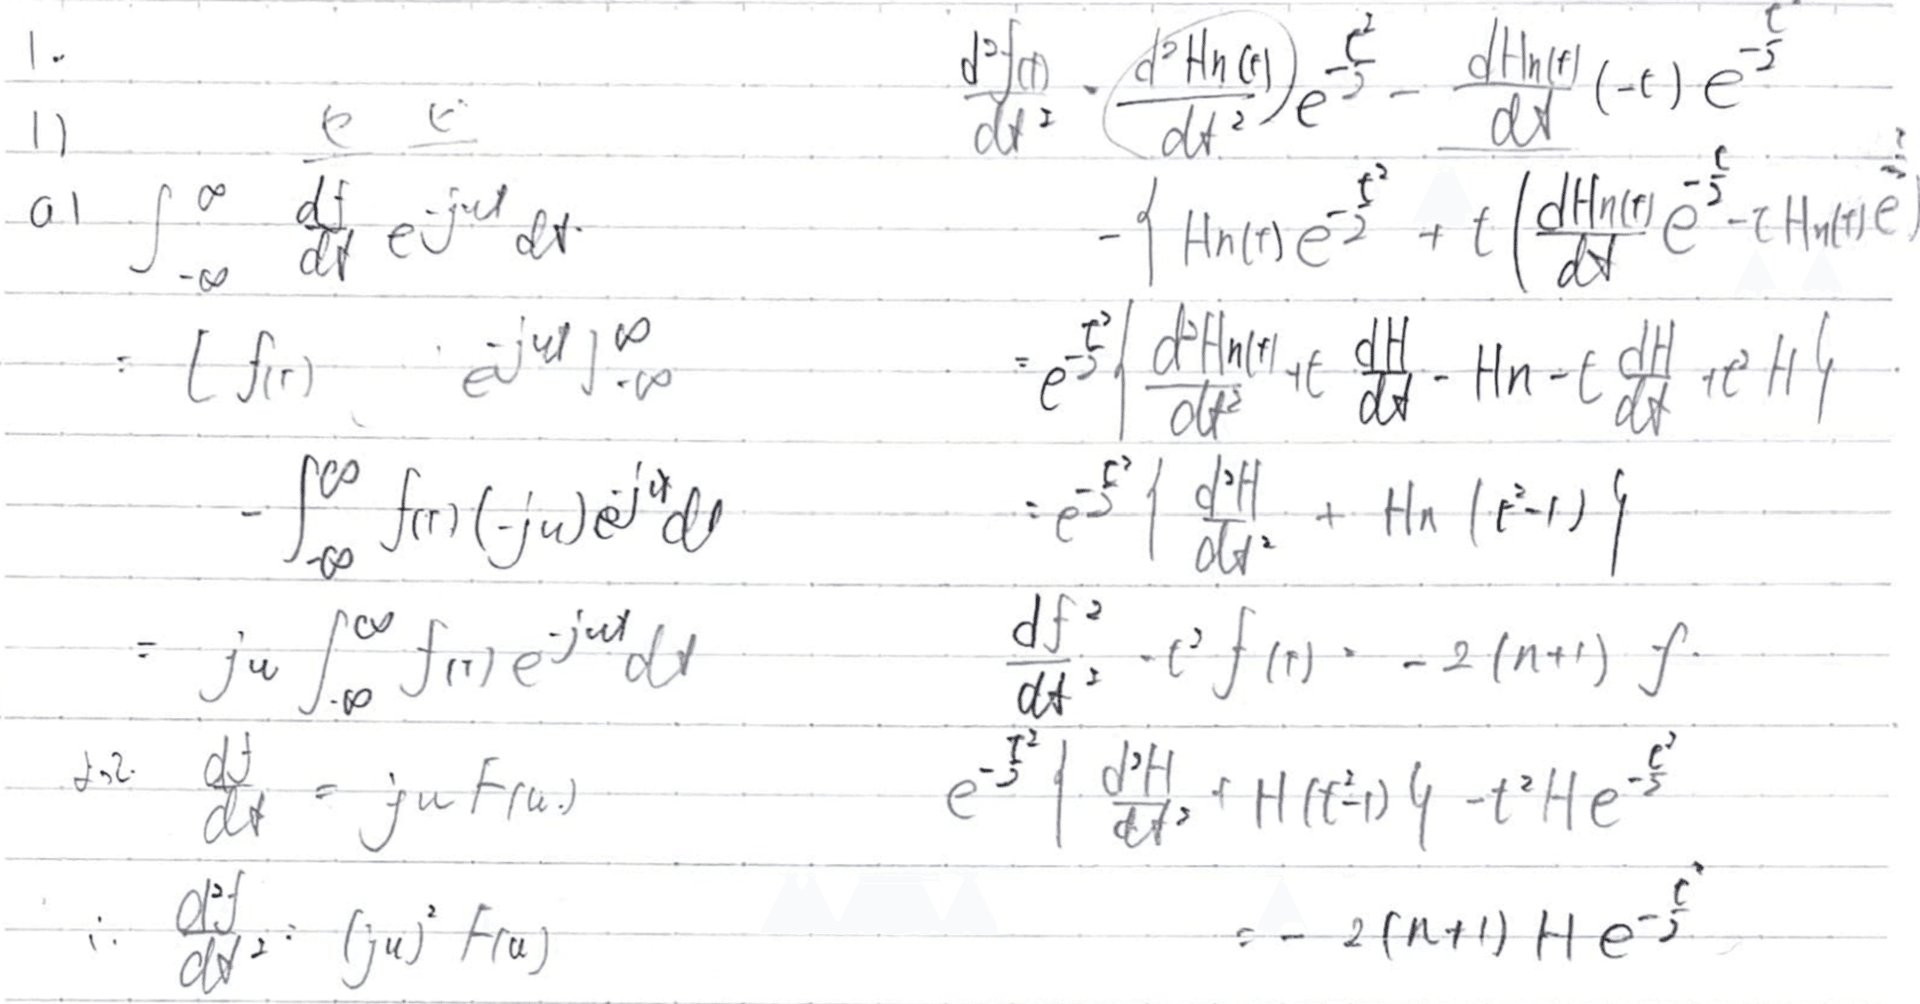 1.
1)
a) ∫_{-∞}^{∞} df/dt e^{-jut} dt
= [ f(t) e^{-jut} ]_{-∞}^{∞}
- ∫_{-∞}^{∞} f(t) (-ju) e^{-jut} dt
= ju ∫_{-∞}^{∞} f(t) e^{-jut} dt
よって df/dt = ju F(u)
∴ d²f/dt² = (ju)² F(u)
d²f(t)/dt² = d²Hn(t)/dt² e^{-t²/2} - dHn(t)/dt (-t) e^{-t²/2}
- { Hn(t) e^{-t²/2} + t ( dHn(t)/dt e^{-t²/2} - t Hn(t) e
= e^{-t²/2} { d²Hn(t)/dt² + t dH/dt - Hn - t dH/dt + t² H }
= e^{-t²/2} { d²H/dt² + Hn (t²-1) }
df²/dt² - t² f(t) = -2(n+1) f
e^{-t²/2} { d²H/dt² + H(t²-1) } - t² H e^{-t²/2}
= -2(n+1) H e^{-t²/2}